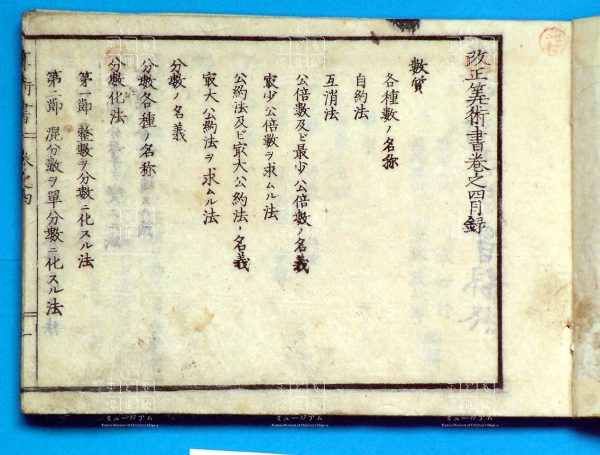 改正筭術書巻之四目録
數質
各種數ノ名称
自約法
互消法
公倍數及ビ最少公倍數ノ名義
最少公倍數ヲ求ムル法
公約法及ビ最大公約法ノ名義
最大公約法ヲ求ムル法
分數ノ名義
分數各種ノ名称
分數化法
第一節 整數ヲ分數ニ化スル法
第二節 混分數ヲ單分數ニ化スル法